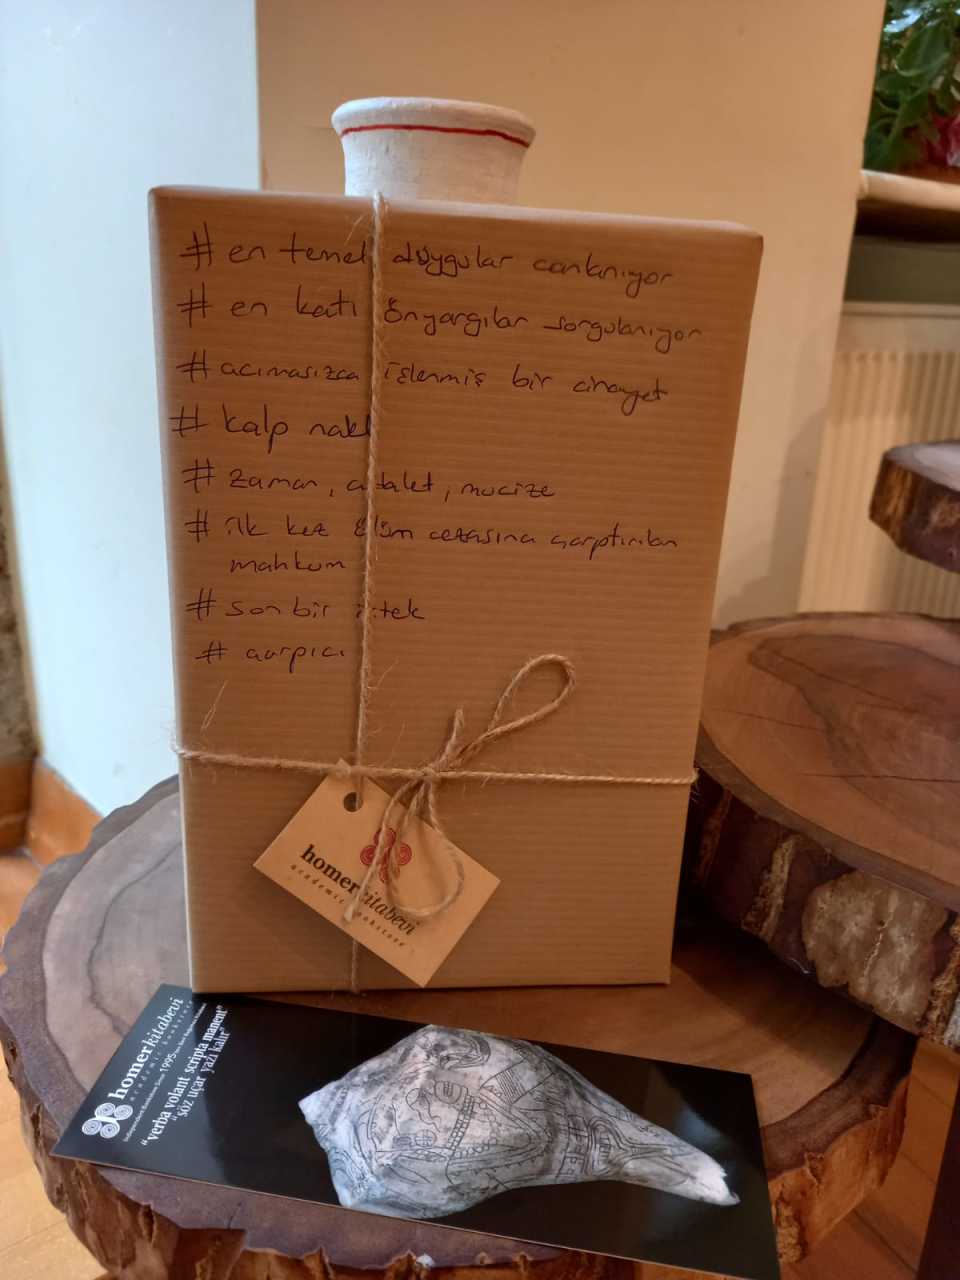 # en temel duygular canlanıyor
# en katı önyargılar sorgulanıyor
# acımasızca işlenmiş bir cinayet
# kalp nakli
# zaman, adalet, mucize
# ilk kez ölüm cezasına çarptırılan
mahkum
# son bir istek
# çarpıcı
homerkitabevi
academic bookstore
homerkitabevi
academic bookstore
1995
"verba volant scripta manent"
"söz uçar yazı kalır"